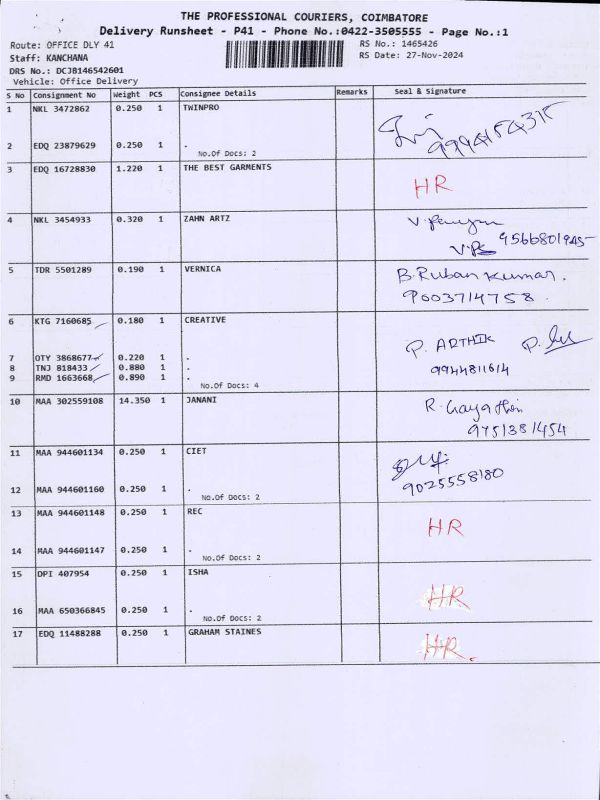 THE PROFESSIONAL COURIERS, COIMBATORE
Delivery Runsheet - P41 - Phone No.:0422-3505555 - Page No.:1
Route: OFFICE DLY 41
RS No.: 1465426
Staff: KANCHANA
RS Date: 27-Nov-2024
DRS No.: DCJB146542601
Vehicle: Office Delivery
S No Consignment No Weight PCS Consignee Details Remarks Seal & Signature
1 NKL 3472862 0.250 1 TWINPRO
9994154315
2 EDQ 23879629 0.250 1 .
No.Of Docs: 2
3 EDQ 16728830 1.220 1 THE BEST GARMENTS
HR
4 NKL 3454933 0.320 1 ZAHN ARTZ
9566801945
5 TDR 5501289 0.190 1 VERNICA
B.Ruban Kumar.
9003714758.
6 KTG 7160685 0.180 1 CREATIVE
P. ARTHIK
7 OTY 3868677 0.220 1 .
8 TNJ 818433 0.880 1 .
9944811614
9 RMD 1663668 0.890 1 .
No.Of Docs: 4
10 MAA 302559108 14.350 1 JANANI
R. Gayathiri
9751381454
11 MAA 944601134 0.250 1 CIET
9025558180
12 MAA 944601160 0.250 1 .
No.Of Docs: 2
13 MAA 944601148 0.250 1 REC
HR
14 MAA 944601147 0.250 1 .
No.Of Docs: 2
15 DPI 407954 0.250 1 ISHA
HR
16 MAA 650366845 0.250 1 .
No.Of Docs: 2
17 EDQ 11488288 0.250 1 GRAHAM STAINES
HR.